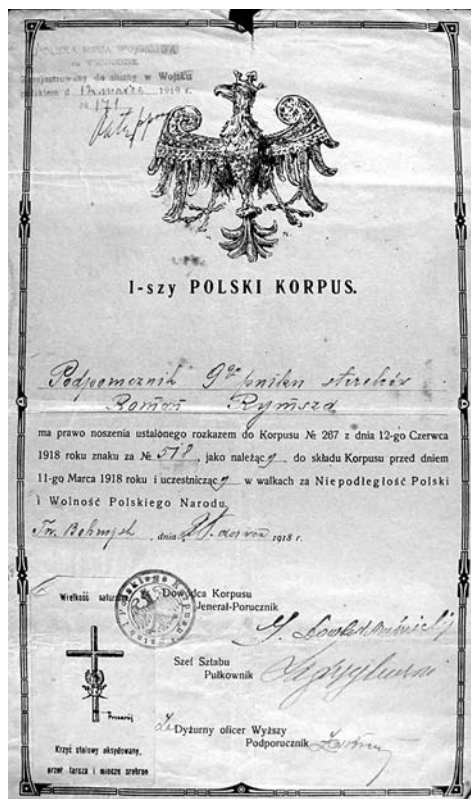 POLSKA MISJA WOJSKOWA
Zarejestrowany do służby w Wojsku
Polskiem d. 1919 r.
№ 171
1-szy POLSKI KORPUS.
Podporucznik 9go pułku strzelców
Roman Rymsza
ma prawo noszenia ustalonego rozkazem do Korpusu № 267 z dnia 12-go Czerwca
1918 roku znaku za № 518, jako należący do składu Korpusu przed dniem
11-go Marca 1918 roku i uczestniczący w walkach za Niepodległość Polski
i Wolność Polskiego Narodu.
, dnia 1918 r.
Wielkość
Dowódca Korpusu
Jenerał-Porucznik
Szef Sztabu
Pułkownik
Za Dyżurny oficer Wyższy
Podporucznik
Krzyż stalowy oksydowany,
orzeł tarcza i miecze srebrne